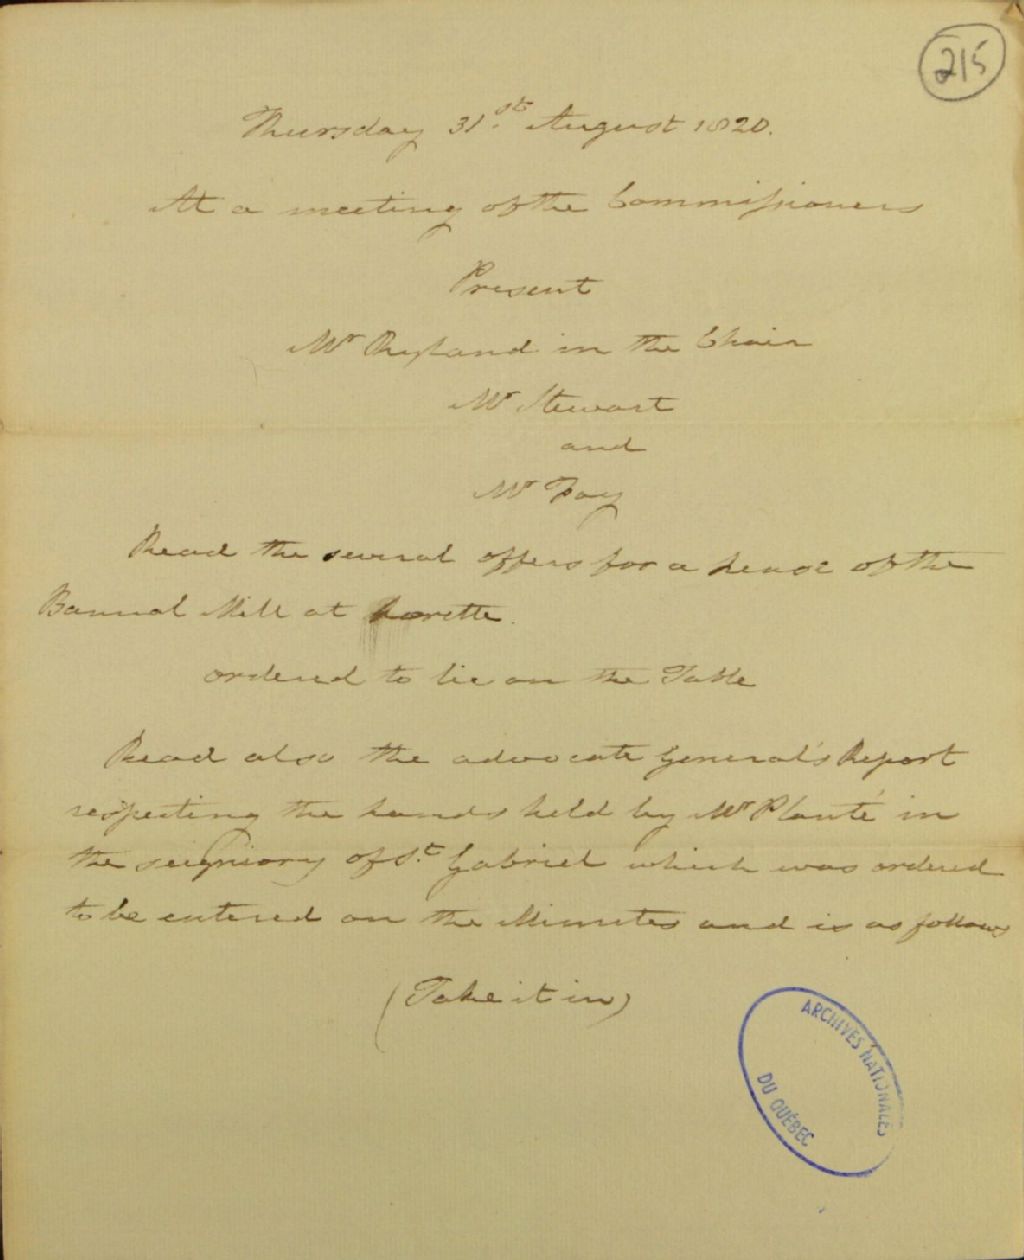 215
Thursday 31st. August 1820.
At a meeting of the Commissioners
Present
Mr Ryland in the Chair
Mr Stewart
and
Mr Foy
Read the several offers for a Lease of the
Bannal Mill at Lorette.
ordered to lie on the Table
Read also the advocate General's Report
respecting the Lands held by Mr Planté in
the seigniory of St. Gabriel which was ordered
to be entered on the Minutes and is as follows
(Take it in)
ARCHIVES NATIONALES
DU QUÉBEC